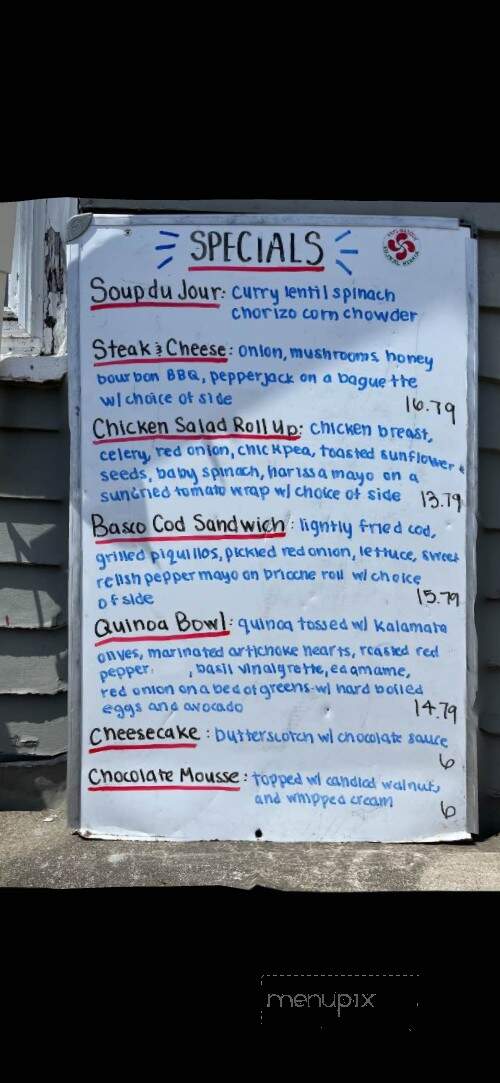 SPECIALS
Soup du Jour: curry lentil spinach
chorizo corn chowder
Steak & Cheese: onion, mushrooms, honey
bourbon BBQ, pepperjack on a baguette
w/ choice of side
16.79
Chicken Salad Roll Up: chicken breast,
celery, red onion, chickpea, toasted sunflower
seeds, baby spinach, harissa mayo on a
sundried tomato wrap w/ choice of side 13.79
Basco Cod Sandwich: lightly fried cod,
grilled piquillos, pickled red onion, lettuce, sweet
relish pepper mayo on brioche roll w/ choice
of side
15.79
Quinoa Bowl: quinoa tossed w/ Kalamata
olives, marinated artichoke hearts, roasted red
pepper, , basil vinaigrette, edamame,
red onion on a bed of greens w/ hard boiled
eggs and avocado
14.79
Cheesecake: butterscotch w/ chocolate sauce
6
Chocolate Mousse: topped w/ candied walnuts
and whipped cream
6
menupix